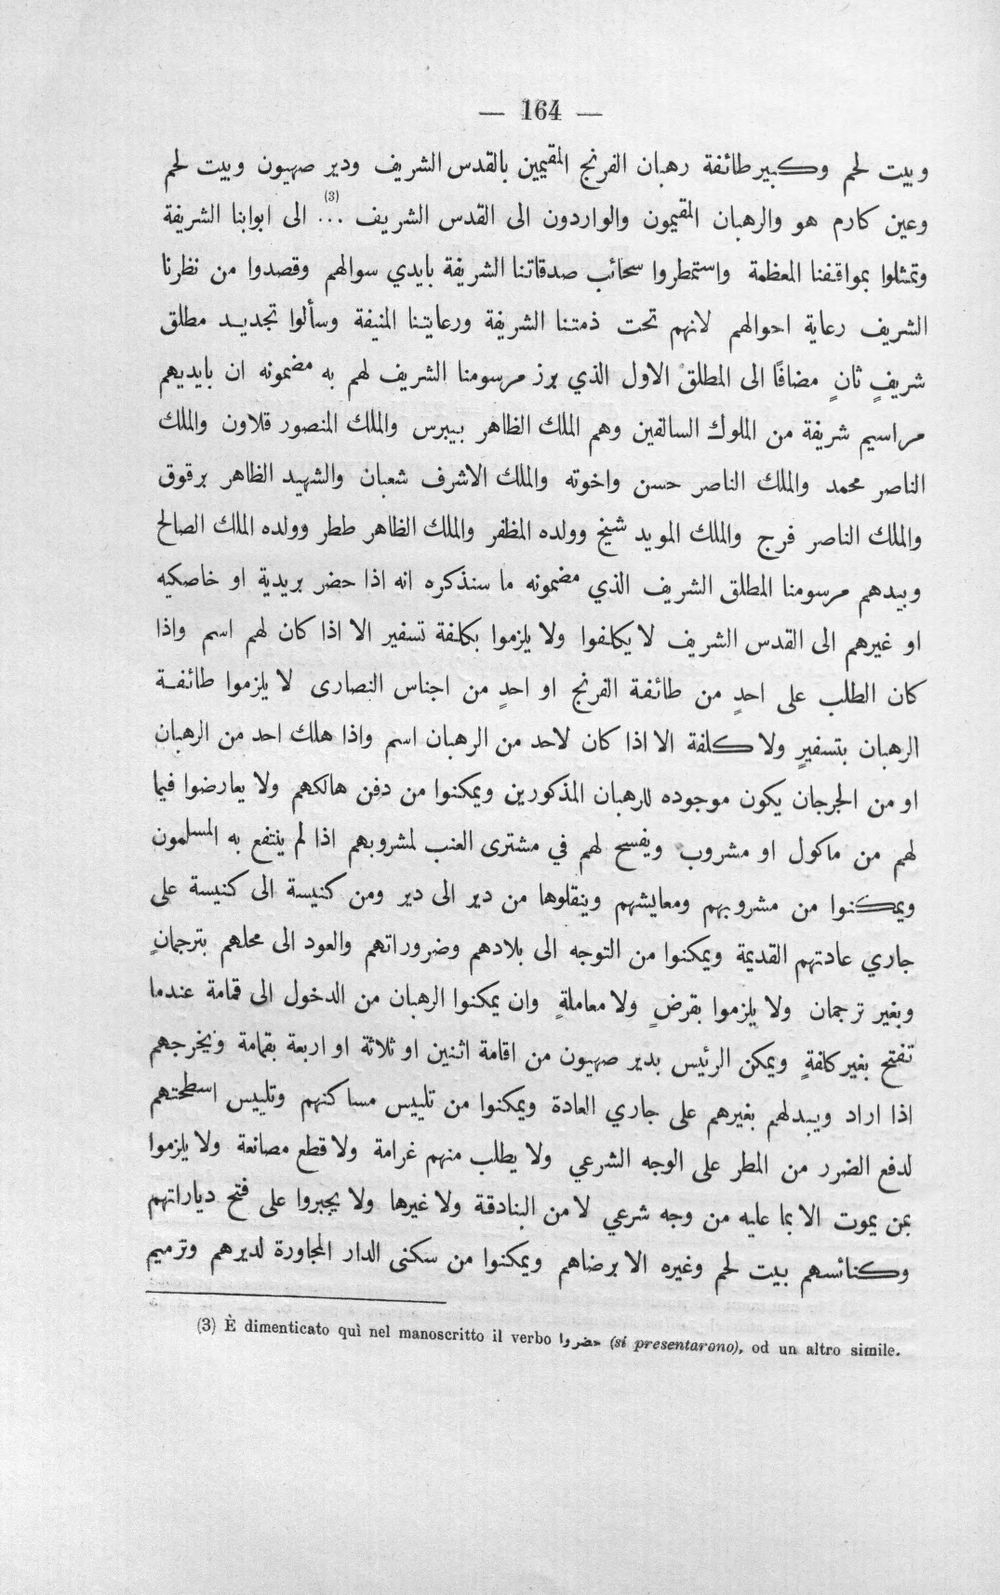 — 164 —
وبيت لحم وكبير طائفة رهبان الفرنج المقيمين بالقدس الشريف ودير صهيون وبيت لحم
وعين كارم هو والرهبان المقيمون والواردون الى القدس الشريف ...(3) الى ابوابنا الشريفة
وتمثلوا بمواقفنا المعظمة واستمطروا سحائب صدقاتنا الشريفة بايدي سوالهم وقصدوا من نظرنا
الشريف رعاية احوالهم لانهم تحت ذمتنا الشريفة ورعايتنا المنيفة وسألوا تجديد مطلق
شريفٍ ثانٍ مضافًا الى المطلق الاول الذي برز مرسومنا الشريف لهم به مضمونه ان بايديهم
مراسيم شريفة من الملوك السالفين وهم الملك الظاهر بيبرس والملك المنصور قلاون والملك
الناصر محمد والملك الناصر حسن واخوته والملك الاشرف شعبان والشهيد الظاهر برقوق
والملك الناصر فرج والملك المويد شيخ وولده المظفر والملك الظاهر ططر وولده الملك الصالح
وبيدهم مرسومنا المطلق الشريف الذي مضمونه ما سنذكره انه اذا حضر بريدية او خاصكيه
او غيرهم الى القدس الشريف لا يكلفوا ولا يلزموا بكلفة تسفير الا اذا كان لهم اسم واذا
كان الطلب على احدٍ من طائفة الفرنج او احدٍ من اجناس النصارى لا يلزموا طائفة
الرهبان بتسفيرٍ ولا كلفة الا اذا كان لاحد من الرهبان اسم واذا هلك احد من الرهبان
او من الجرجان يكون موجوده للرهبان المذكورين ويمكنوا من دفن هالكهم ولا يعارضوا فيما
لهم من ماكول او مشروب ويفسح لهم في مشترى العنب لمشروبهم اذا لم ينتفع به المسلمون
ويمكنوا من مشروبهم ومعايشهم وينقلوها من دير الى دير ومن كنيسة الى كنيسة على
جاري عادتهم القديمة ويمكنوا من التوجه الى بلادهم وضروراتهم والعود الى محلهم بترجمانٍ
وبغير ترجمان ولا يلزموا بقرضٍ ولا معاملةٍ وان يمكنوا الرهبان من الدخول الى قمامة عندما
تفتح بغير كلفةٍ ويمكن الرئيس بدير صهيون من اقامة اثنين او ثلاثة او اربعة بقمامة ويخرجهم
اذا اراد ويبدلهم بغيرهم على جاري العادة ويمكنوا من تلييس مساكنهم وتلييس اسطحتهم
لدفع الضرر من المطر على الوجه الشرعي ولا يطلب منهم غرامة ولا قطع مصانعة ولا يلزموا
بمن يموت الا بما عليه من وجه شرعي لا من البنادقة ولا غيرها ولا يجبروا على فتح دياراتهم
وكنائسهم بيت لحم وغيره الا برضاهم ويمكنوا من سكنى الدار المجاورة لديرهم وترميم
(3) È dimenticato quì nel manoscritto il verbo حضروا (si presentarono), od un altro simile.